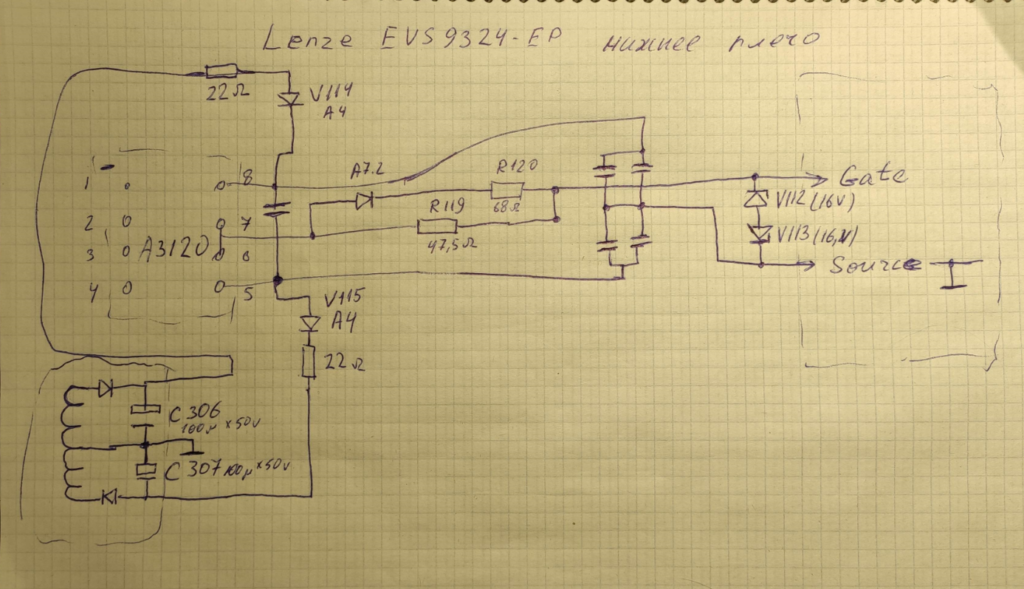 Lenze EVS9324-EP нижнее плечо
22Ω
V114
A4
1
8
A7.2
R120
68Ω
Gate
2
7
R119
47,5Ω
V112 (16V)
3
A3120
6
V113 (16,V)
4
5
Source
V115
A4
22Ω
C306
100µ x50v
C307 100µ x50v